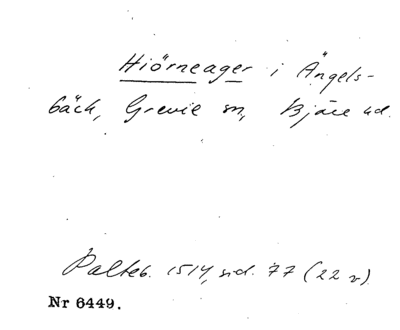 Hiörneager i Ängels-
bäck, Grevie sn, Bjäre hd.
Palteb. 1514, sid. 77 (22 v)
Nr 6449.